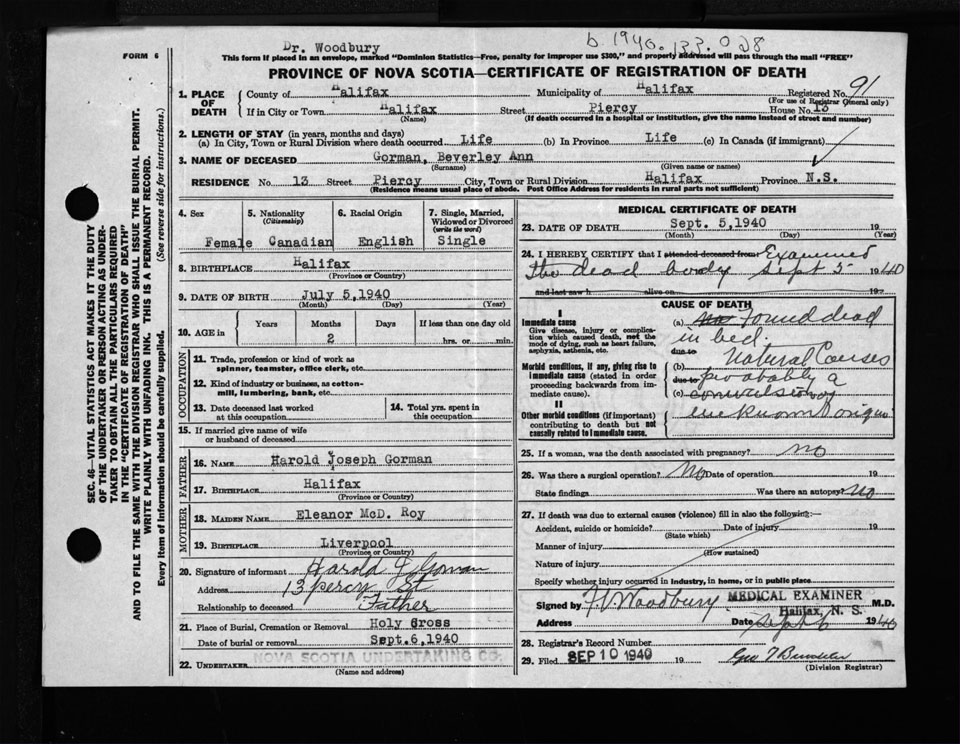 Dr. Woodbury
b 1940. 133. 028
FORM 6
This form if placed in an envelope, marked "Dominion Statistics—Free, penalty for improper use $300," and properly addressed will pass through the mail "FREE"
PROVINCE OF NOVA SCOTIA—CERTIFICATE OF REGISTRATION OF DEATH
1. PLACE OF DEATH County of Halifax Municipality of Halifax Registered No. 91
(For use of Registrar General only)
If in City or Town Halifax Street Piercy House No. 13
(Name) (If death occurred in a hospital or institution, give the name instead of street and number)
2. LENGTH OF STAY (in years, months and days)
(a) In City, Town or Rural Division where death occurred Life (b) In Province Life (c) In Canada (if immigrant)
3. NAME OF DECEASED Gorman, Beverley Ann
(Surname) (Given name or names)
RESIDENCE No. 13 Street Piercy City, Town or Rural Division Halifax Province N.S.
(Residence means usual place of abode. Post Office Address for residents in rural parts not sufficient)
SEC. 46—VITAL STATISTICS ACT MAKES IT THE DUTY
OF THE UNDERTAKER OR PERSON ACTING AS UNDER-
TAKER TO OBTAIN ALL THE PARTICULARS REQUIRED
IN THE "CERTIFICATE OF REGISTRATION OF DEATH"
AND TO FILE THE SAME WITH THE DIVISION REGISTRAR WHO SHALL ISSUE THE BURIAL PERMIT.
WRITE PLAINLY WITH UNFADING INK. THIS IS A PERMANENT RECORD.
Every item of information should be carefully supplied. (See reverse side for instructions.)
4. Sex
Female
5. Nationality
(Citizenship)
Canadian
6. Racial Origin
English
7. Single, Married,
Widowed or Divorced
(write the word)
Single
8. BIRTHPLACE Halifax
(Province or Country)
9. DATE OF BIRTH July 5,1940
(Month) (Day) (Year)
10. AGE in Years Months Days If less than one day old
2 hrs. or min.
OCCUPATION
11. Trade, profession or kind of work as
spinner, teamster, office clerk, etc.
12. Kind of industry or business, as cotton-
mill, lumbering, bank, etc.
13. Date deceased last worked
at this occupation
14. Total yrs. spent in
this occupation
15. If married give name of wife
or husband of deceased
FATHER
16. NAME Harold Joseph Gorman
17. BIRTHPLACE Halifax
(Province or Country)
MOTHER
18. MAIDEN NAME Eleanor McD. Roy
19. BIRTHPLACE Liverpool
(Province or Country)
20. Signature of informant Harold J Gorman
Address 13 Percy St
Relationship to deceased Father
21. Place of Burial, Cremation or Removal Holy Cross
Date of burial or removal Sept.6,1940
22. UNDERTAKER NOVA SCOTIA UNDERTAKING CO.
(Name and address)
MEDICAL CERTIFICATE OF DEATH
23. DATE OF DEATH Sept. 5,1940 19
(Month) (Day) (Year)
24. I HEREBY CERTIFY that I attended deceased from Examined
the dead body Sept 5 1940
and last saw h alive on 19
CAUSE OF DEATH
I
Immediate cause
Give disease, injury or complica-
tion which caused death, not the
mode of dying, such as heart failure,
asphyxia, asthenia, etc.
Morbid conditions, if any, giving rise to
immediate cause (stated in order
proceeding backwards from im-
mediate cause).
II
Other morbid conditions (if important)
contributing to death but not
causally related to immediate cause.
(a) Found dead
in bed.
due to
(b) Natural Causes
due to probably a
(c) convulsion of
unknown origin
25. If a woman, was the death associated with pregnancy? no
26. Was there a surgical operation? No Date of operation 19
State findings Was there an autopsy? no
27. If death was due to external causes (violence) fill in also the following:—
Accident, suicide or homicide? Date of injury 19
(State which)
Manner of injury
(How sustained)
Nature of injury
Specify whether injury occurred in industry, in home, or in public place
Signed by F.V. Woodbury MEDICAL EXAMINER M.D.
Halifax, N. S.
Address Date Sept 6 1940
28. Registrar's Record Number
29. Filed SEP 10 1940 19
(Division Registrar)